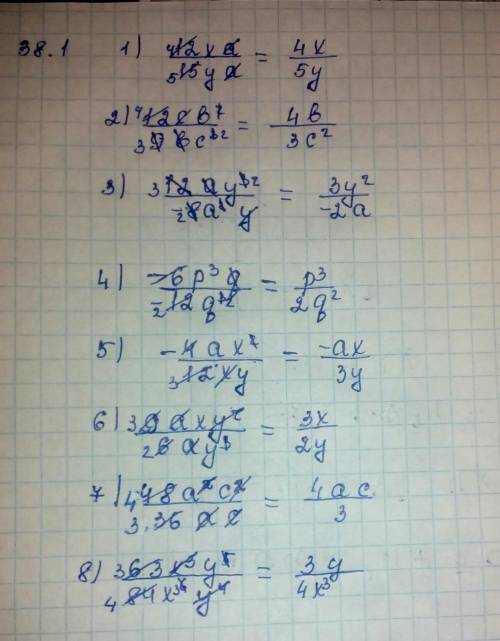 38.1 1) 12xa/15ya = 4x/5y
2) 12cb²/9bc³ = 4b/3c²
3) 12ay³/-8a²y = 3y²/-2a
4) -6p³q/-12q³ = p³/2q²
5) -4ax²/12xy = -ax/3y
6) 9axy²/6ay³ = 3x/2y
7) 48a²c²/36ac = 4ac/3
8) 63x³y⁵/84x⁶y⁴ = 3y/4x³